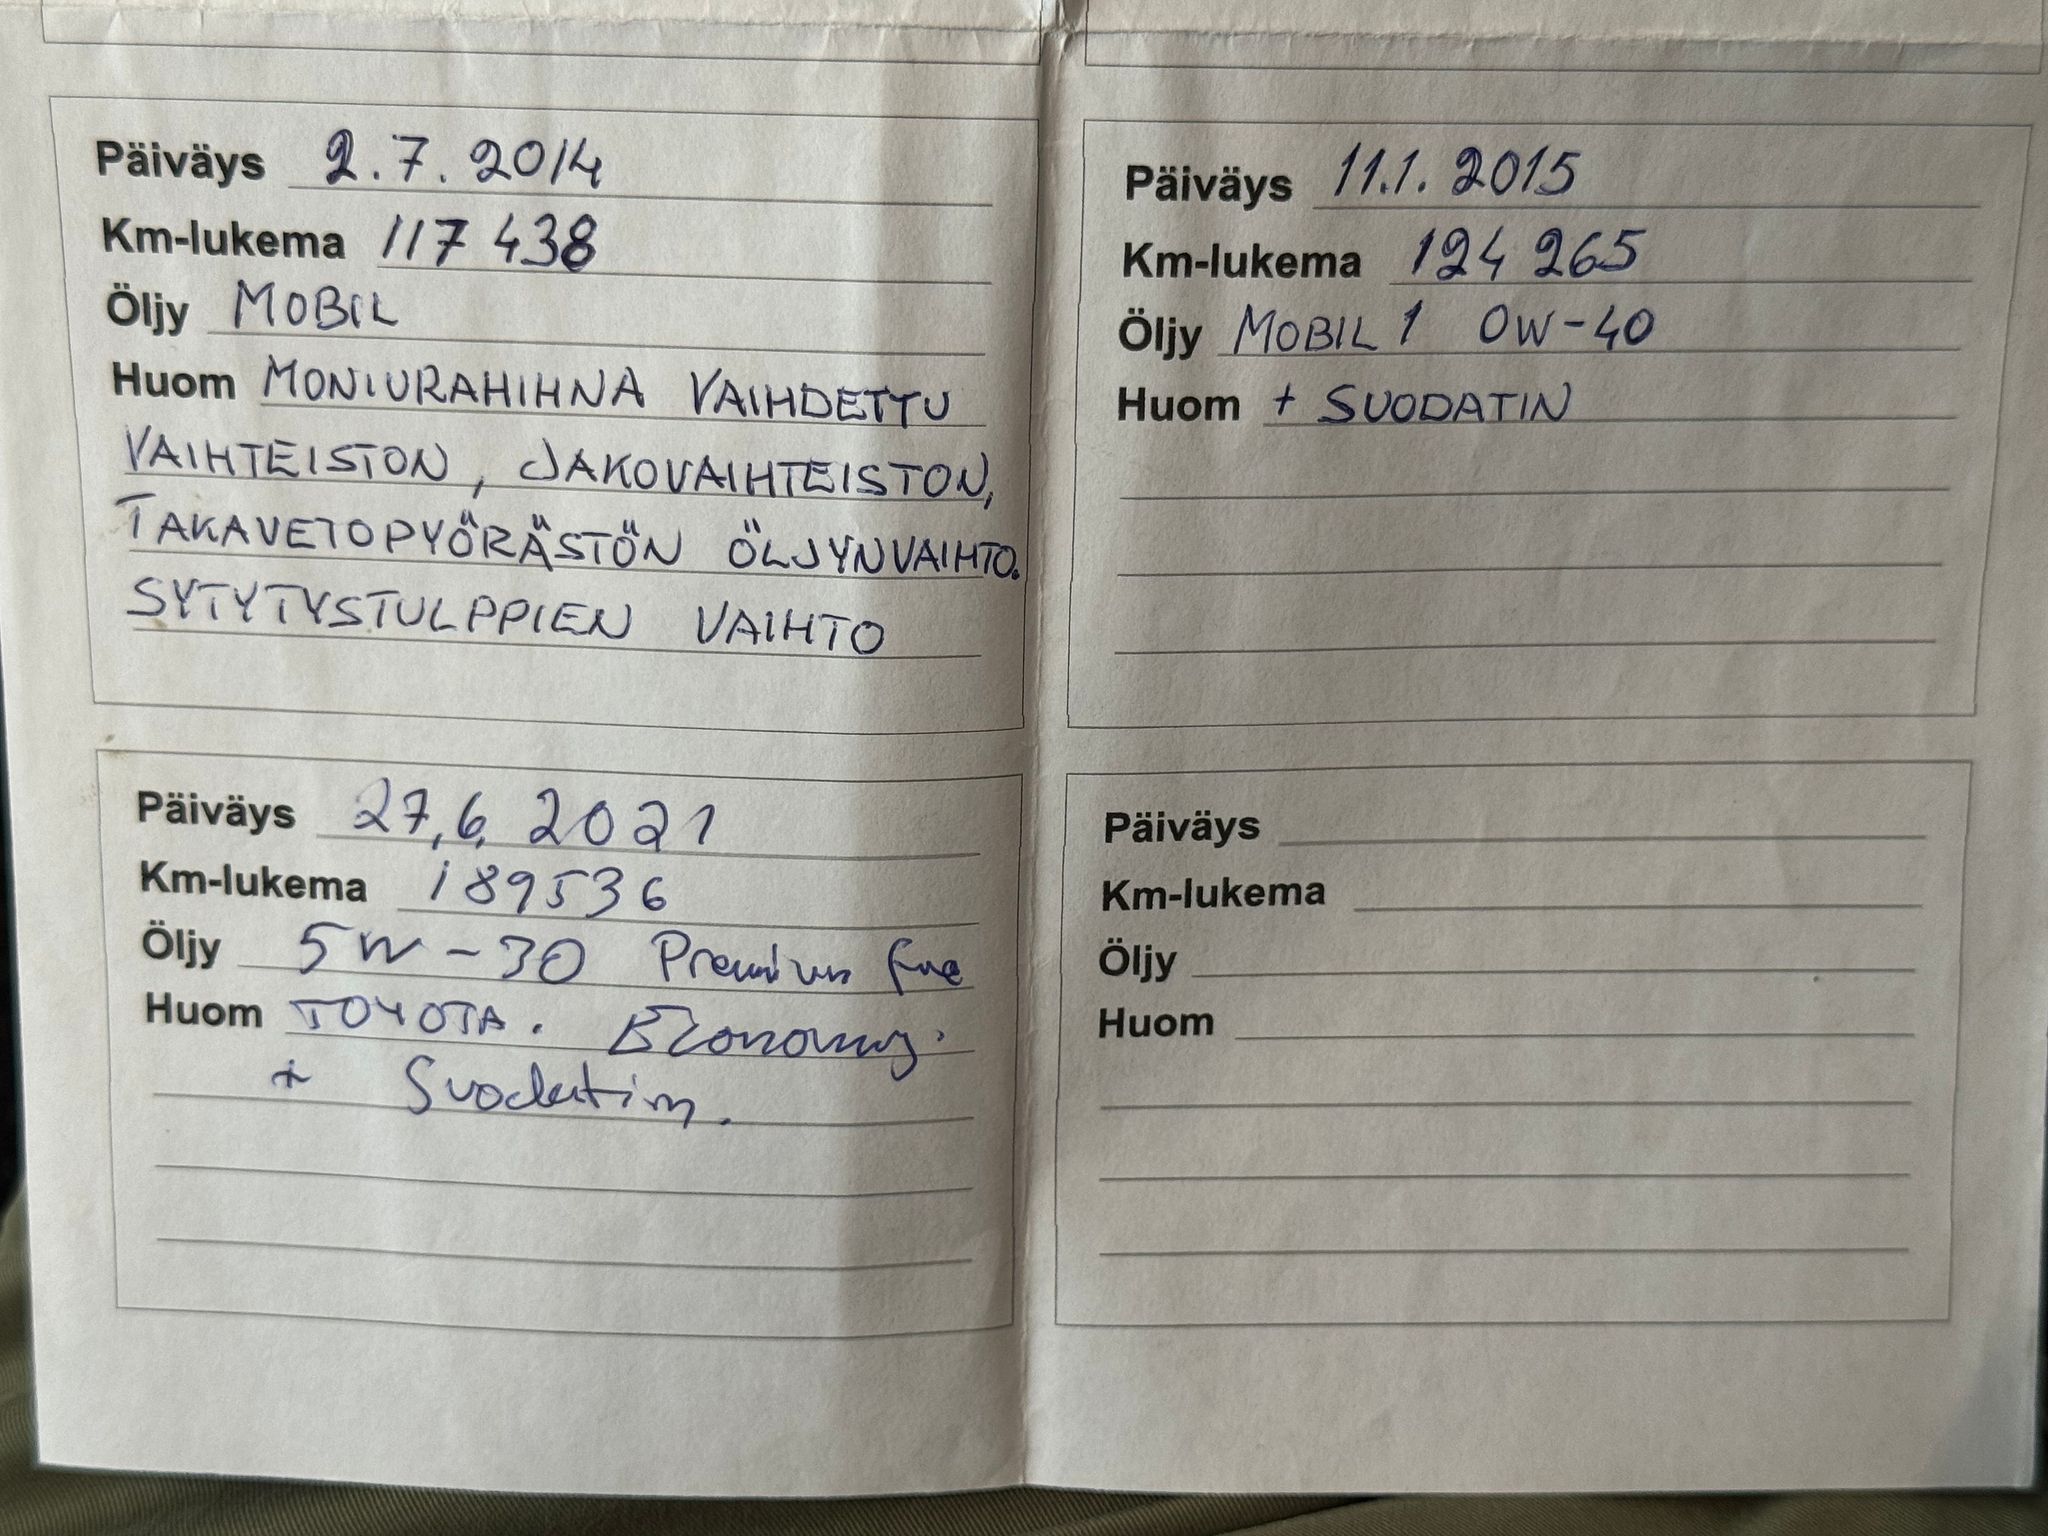 Päiväys 2.7.2014
Km-lukema 117 438
Öljy MOBIL
Huom MONIURAHIHNA VAIHDETTU
VAIHTEISTON, JAKOVAIHTEISTON,
TAKAVETOPYÖRÄSTÖN ÖLJYNVAIHTO.
SYTYTYSTULPPIEN VAIHTO
Päiväys 11.1.2015
Km-lukema 124 265
Öljy MOBIL 1 0W-40
Huom + SUODATIN
Päiväys 27.6.2021
Km-lukema 189536
Öljy 5W-30 Premium
Huom TOYOTA. Economy.
+ Suodatin.
Päiväys
Km-lukema
Öljy
Huom